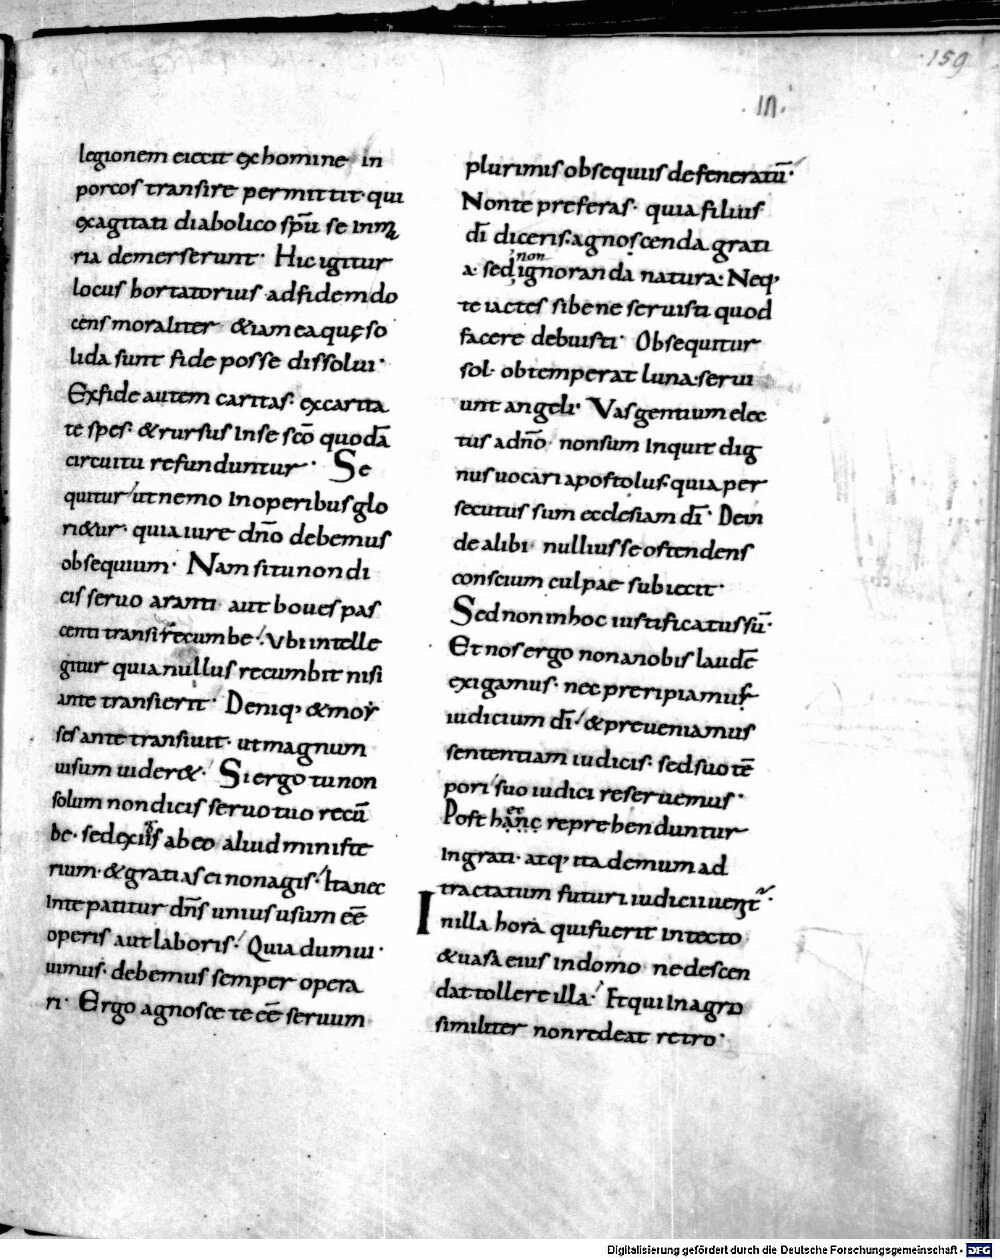 159
III.
legionem eiecit exhomine in
porcos transire permittit· qui
exagitati diabolico sp̄u se inma
ria demerserunt· Hic igitur
locus hortatorius adfidem do
cens moraliter &iam ea quę so
lida sunt fide posse dissolui·
Exfide autem caritas· excarita
te spes· &rursus inse sc̄o quodā
circuitu refunduntur· Se
quitur ut nemo inoperibus glo
ri&ur· quia iure dn̄o debemus
obsequium· Nam si tu non di
cis seruo aranti aut boues pas
centi transi recumbe· Vbi intelle
gitur quia nullus recumbit nisi
ante transierit· Deniq; &moy
ses ante transiuit· ut magnum
uisum uider&· Si ergo tu non
solum non dicis seruo tuo recū
be· sed exigis ab eo aliud ministe
rium· &gratias ei non agis· Ita nec
inte patitur dn̄s unius usum eē
operis aut laboris· Quia dum ui
uimus· debemus semper opera
ri· Ergo agnosce te eē seruum
plurimis obsequiis defeneratū·
Nonte preferas· quia filius
dī diceris· agnoscenda grati
a· sed non ignoranda natura· Neq;
te iactes si bene seruisti quod
facere debuisti· Obsequitur
sol· obtemperat luna· serui
unt angeli· Vas gentium elec
tus adn̄o· non sum inquit dig
nus uocari apostolus· quia per
secutus sum ecclesiam dī· Dein
de alibi· nullius se ostendens
conscium culpae subiecit·
Sed non inhoc iustificatus sū·
Et nos ergo non anobis laudē
exigamus· nec preripiamus
iudicium dī· &preueniamus
sententiam iudicis· sed suo tē
pori suo iudici reseruemus·
Post hęc reprehenduntur
ingrati· atq; ita demum ad
tractatum futuri iudicii uenit·
Inilla hora qui fuerit intecto
&uasa eius in domo ne descen
dat tollere illa· Et qui in agro
similiter non redeat retro·
Digitalisierung gefördert durch die Deutsche Forschungsgemeinschaft - DFG